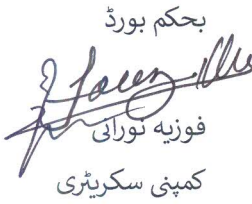 بحکم بورڈ
فوزیہ نورانی
کمپنی سکریٹری